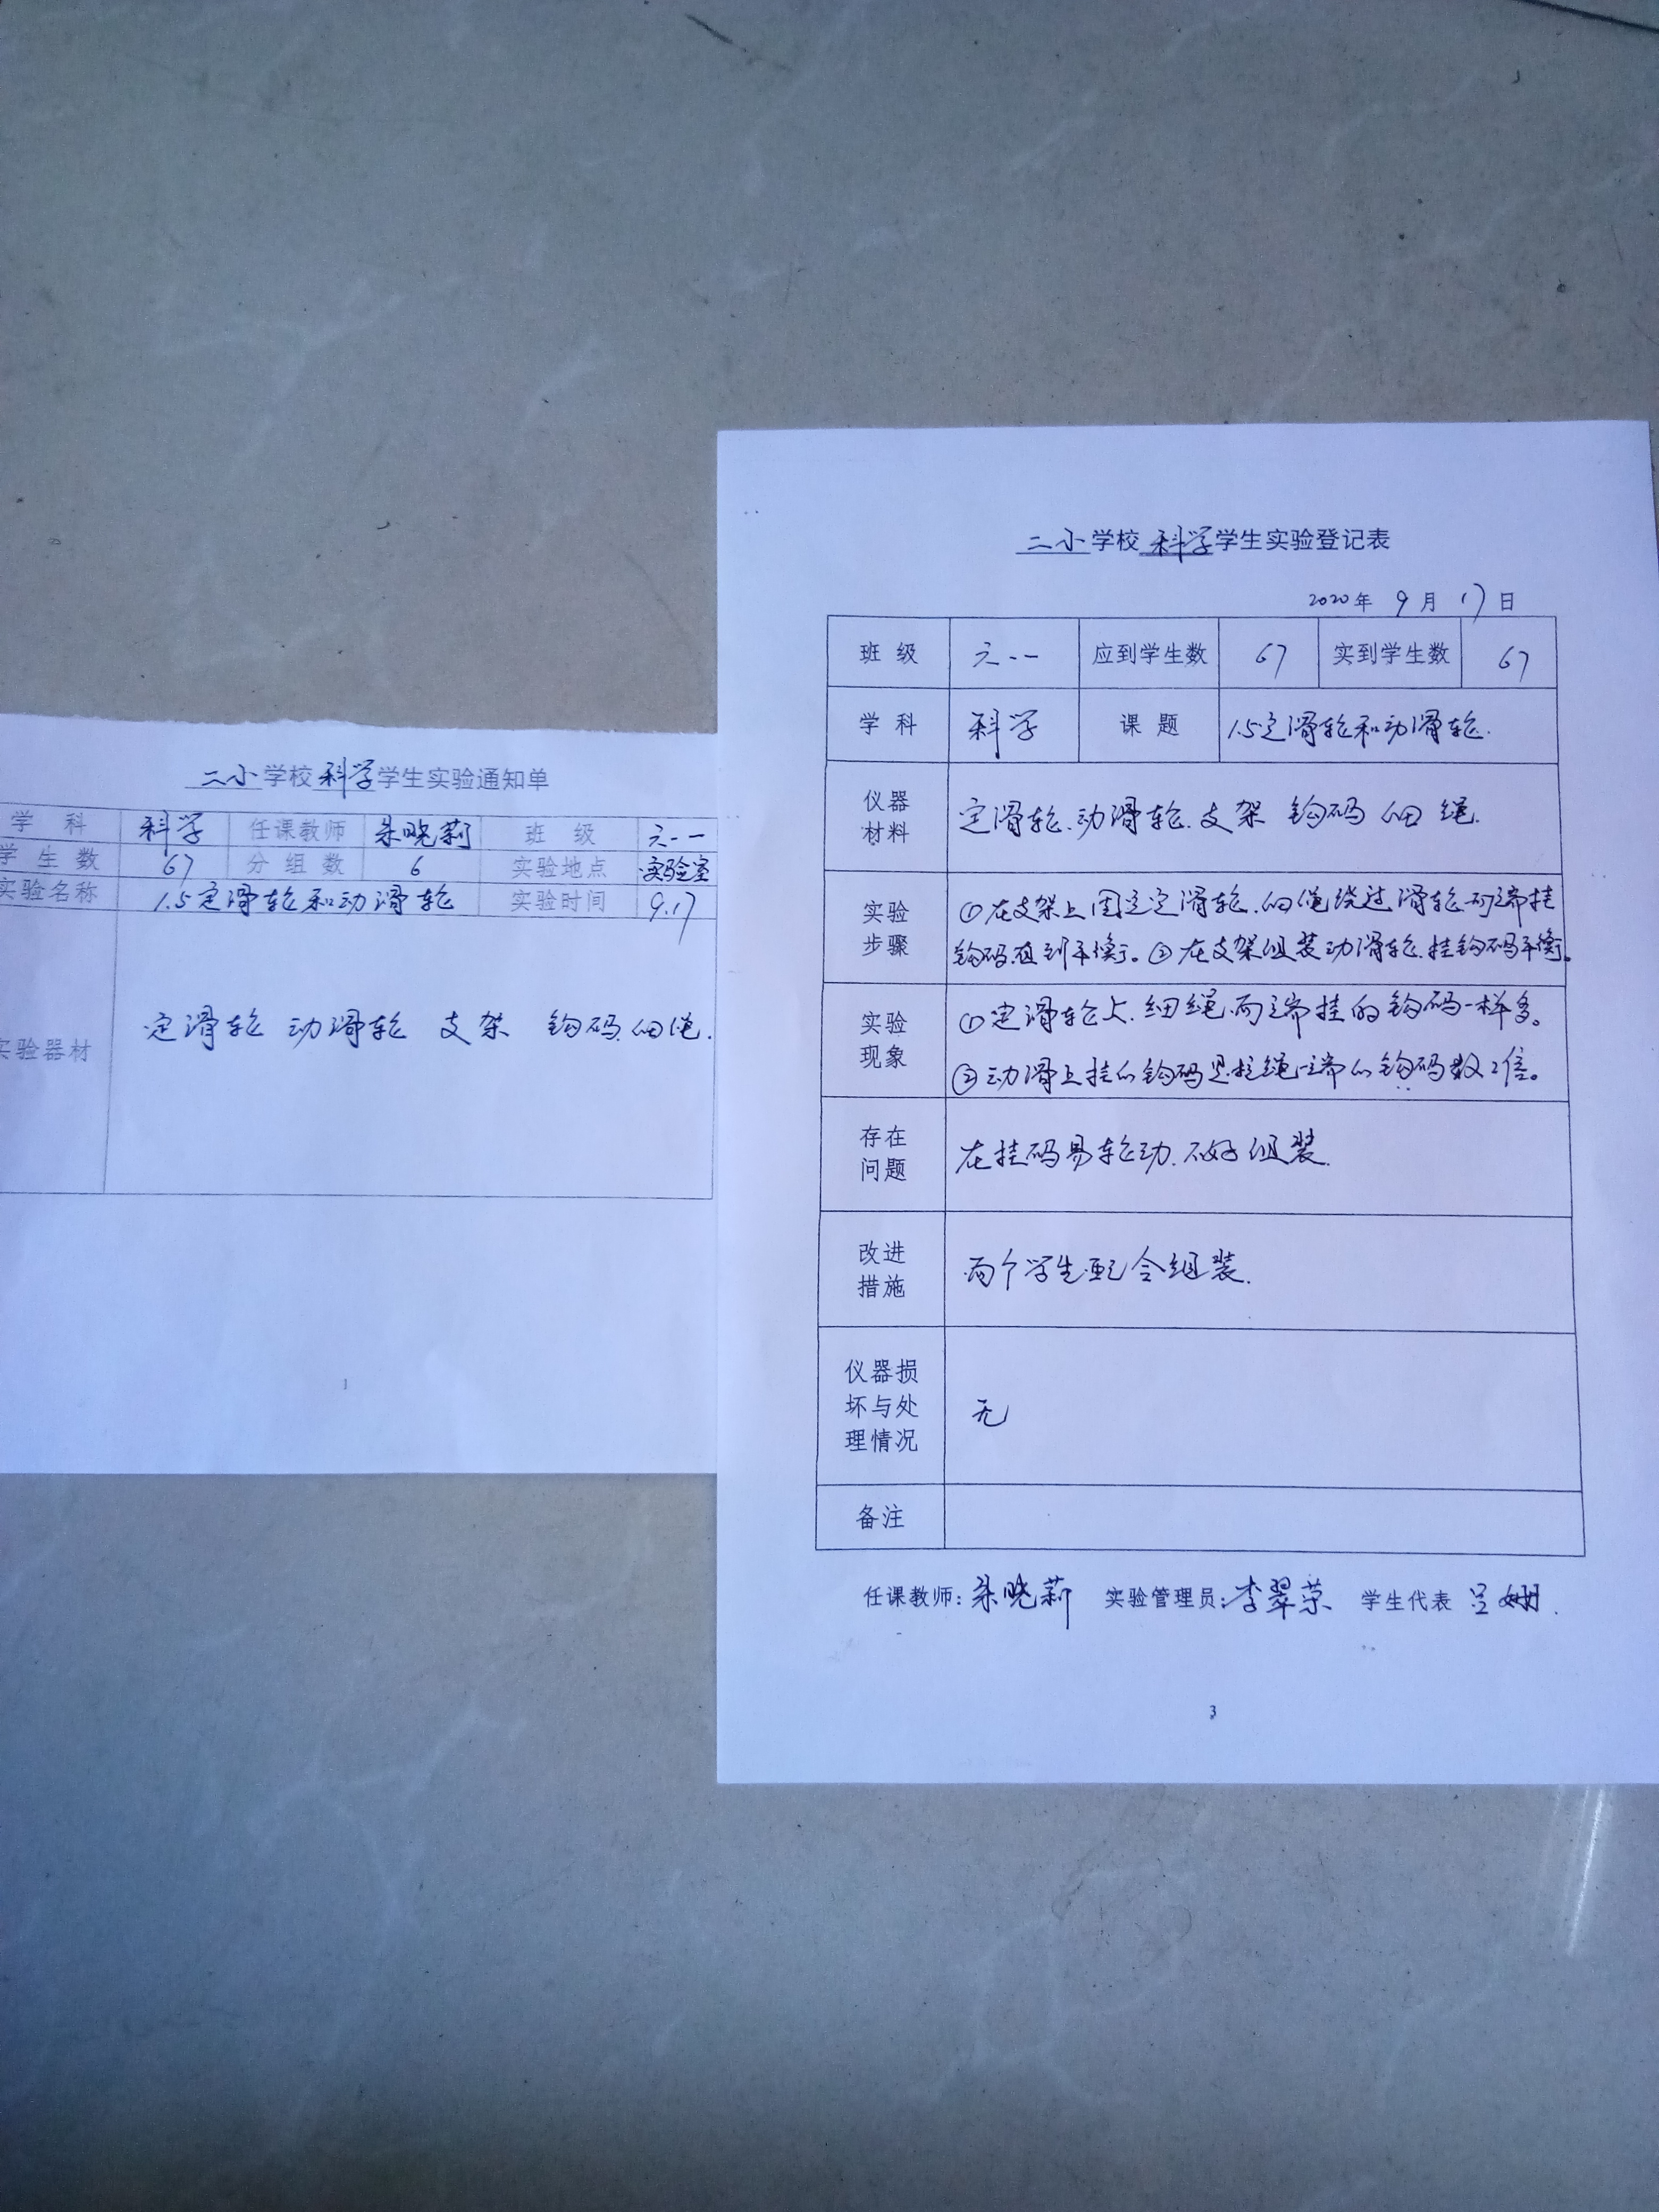 二小学校科学学生实验通知单
学科 科学 任课教师 朱晓莉 班级 六.一
学生数 67 分组数 6 实验地点 实验室
实验名称 1.5定滑轮和动滑轮 实验时间 9.17
实验器材 定滑轮 动滑轮 支架 钩码.细绳.
1
二小学校科学学生实验登记表
2020年 9月 17日
班级 六.一 应到学生数 67 实到学生数 67
学科 科学 课题 1.5定滑轮和动滑轮.
仪器
材料
定滑轮.动滑轮.支架 钩码 细绳.
实验
步骤
①在支架上固定定滑轮.细绳绕过滑轮.两端挂
钩码.直到平衡。②在支架组装动滑轮.挂钩码平衡。
实验
现象
①定滑轮上.细绳两端挂的钩码一样多。
②动滑上挂的钩码是拉绳一端的钩码数2倍。
存在
问题
在挂码易轮动.不好组装.
改进
措施
两个学生配合组装.
仪器损
坏与处
理情况
无
备注
任课教师:朱晓莉 实验管理员:李翠荣 学生代表 吕姗.
3